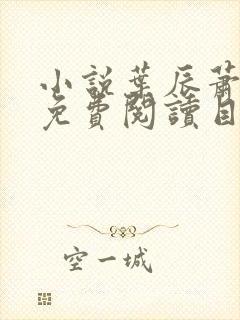 小說葉辰蕭
免費閱讀目
空一城